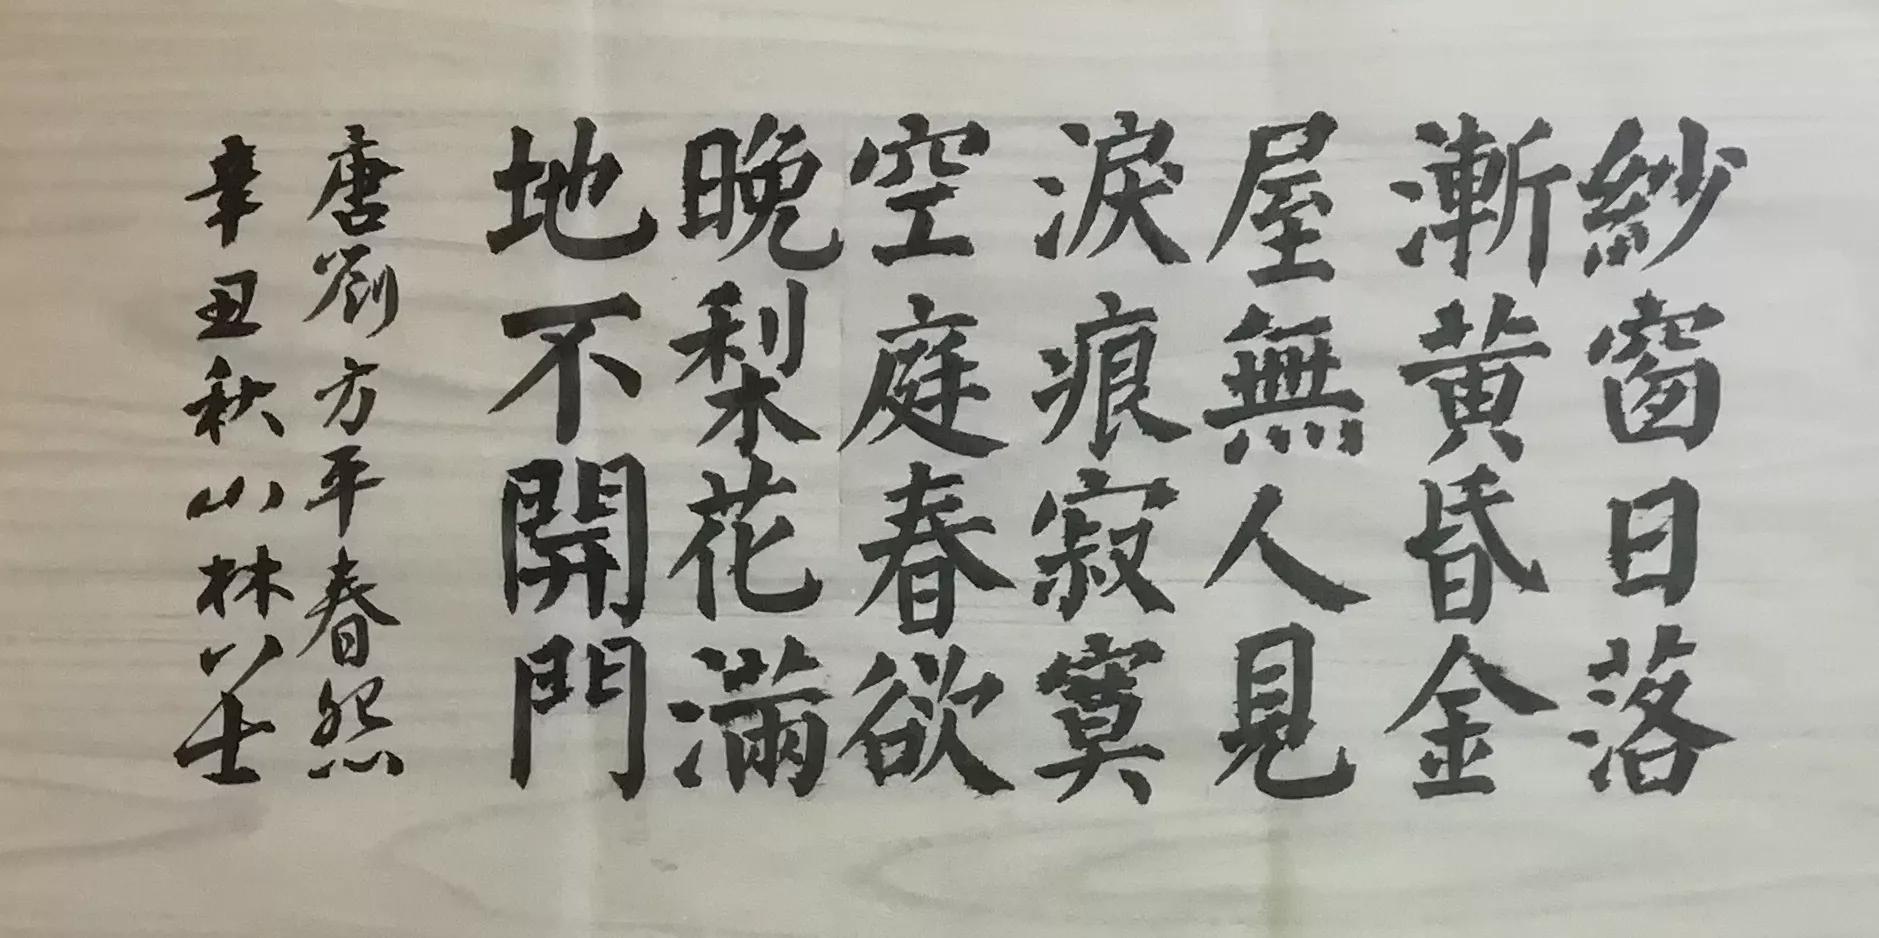 紗窗日落
漸黃昏金
屋無人見
淚痕寂寞
空庭春欲
晚梨花滿
地不開門
唐劉方平春怨
辛丑秋山林公士